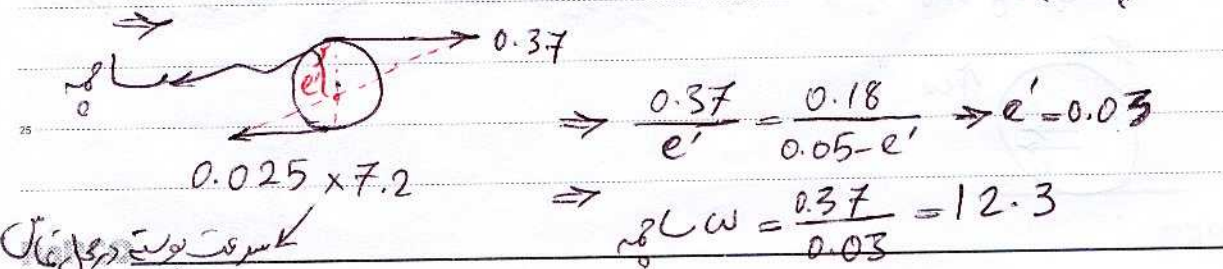 0.37
ساچمه
e'
25
0.37/e' = 0.18/(0.05-e') ⇒ e' = 0.03
0.025 × 7.2
⇒ ω ساچمه = 0.37/0.03 = 12.3
سرعت پوسته در محل تماس